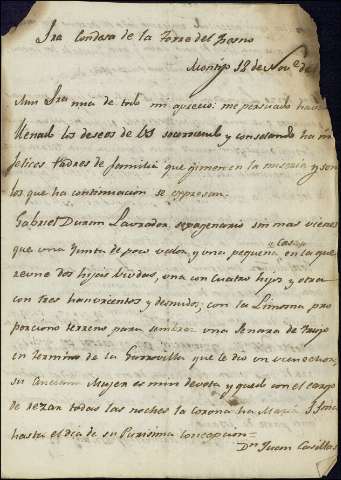 Sra Condesa de la Torre del Fresno
Montijo 18 de Nove de
Muy Sra mia de todo mi aprecio: me persuado haver
llenado los deseos de VS socorriendo y consolando ha in
felices Padres de familia que gimen en la miseria y son
los que ha continuacion se expresan.
Gabriel Duran Lavrador, sexagenario sin mas vienes
que una Yunta de poco valor, y una pequeña casa en la que
reune dos hijas viudas, una con cuatro hijos y otra
con tres hanvrientos y desnudos; con la Limosna pro
porciono terreno para sembrar una Senara de trigo
en termino de la Garrovilla que le dio un vienechor,
su Anciana Mujer es mui devota y quedo con el cargo
de rezar todas las noches la corona ha Maria S
hasta el dia de su Purisima Concepcion=
Dn Juan Casillas